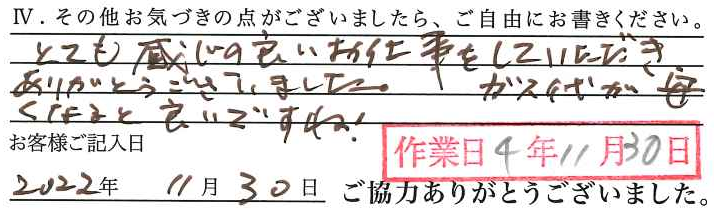 Ⅳ．その他お気づきの点がございましたら、ご自由にお書きください。
とても感じの良いお仕事をしていただき
ありがとうございました。 ガス代が安
くなると良いですね!
お客様ご記入日
作業日 4年11月30日
2022年 11月30日 ご協力ありがとうございました。